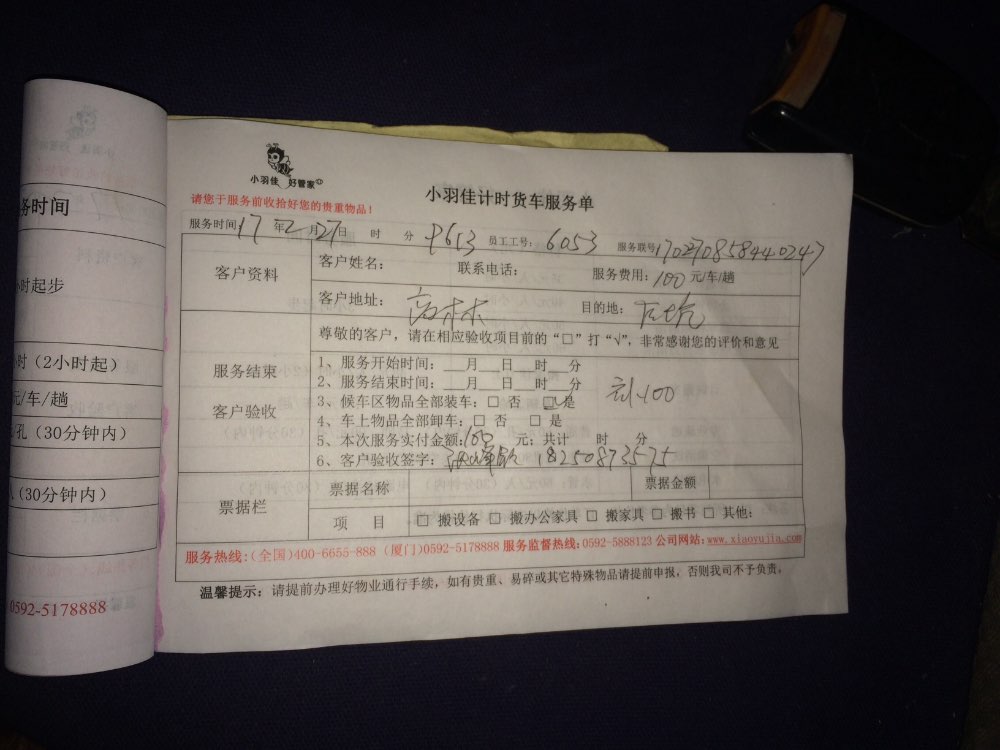 务时间
小时起步
时（2小时起）
元/车/趟
孔（30分钟内）
（30分钟内）
0592-5178888
小羽佳 好管家
小羽佳计时货车服务单
请您于服务前收拾好您的贵重物品！
服务时间 17 年 2 月 27 日 时 分 员工工号： 6053 服务联号 170270858440247
客户资料
客户姓名： 联系电话： 服务费用：100 元/车/趟
客户地址： 高林 目的地：
服务结束
客户验收
尊敬的客户，请在相应验收项目前的“□”打“√”，非常感谢您的评价和意见
1、服务开始时间：__月__日__时__分
2、服务结束时间：__月__日__时__分
3、候车区物品全部装车：□ 否 □ 是
4、车上物品全部卸车：□ 否 □ 是
5、本次服务实付金额：100 元；共计 时 分
6、客户验收签字： 18250873575
票据栏
票据名称 票据金额
项 目 □ 搬设备 □ 搬办公家具 □ 搬家具 □ 搬书 □ 其他：
服务热线：(全国)400-6655-888 (厦门)0592-5178888 服务监督热线：0592-5888123 公司网站：www.xiaoyujia.com
温馨提示：请提前办理好物业通行手续，如有贵重、易碎或其它特殊物品请提前申报，否则我司不予负责。